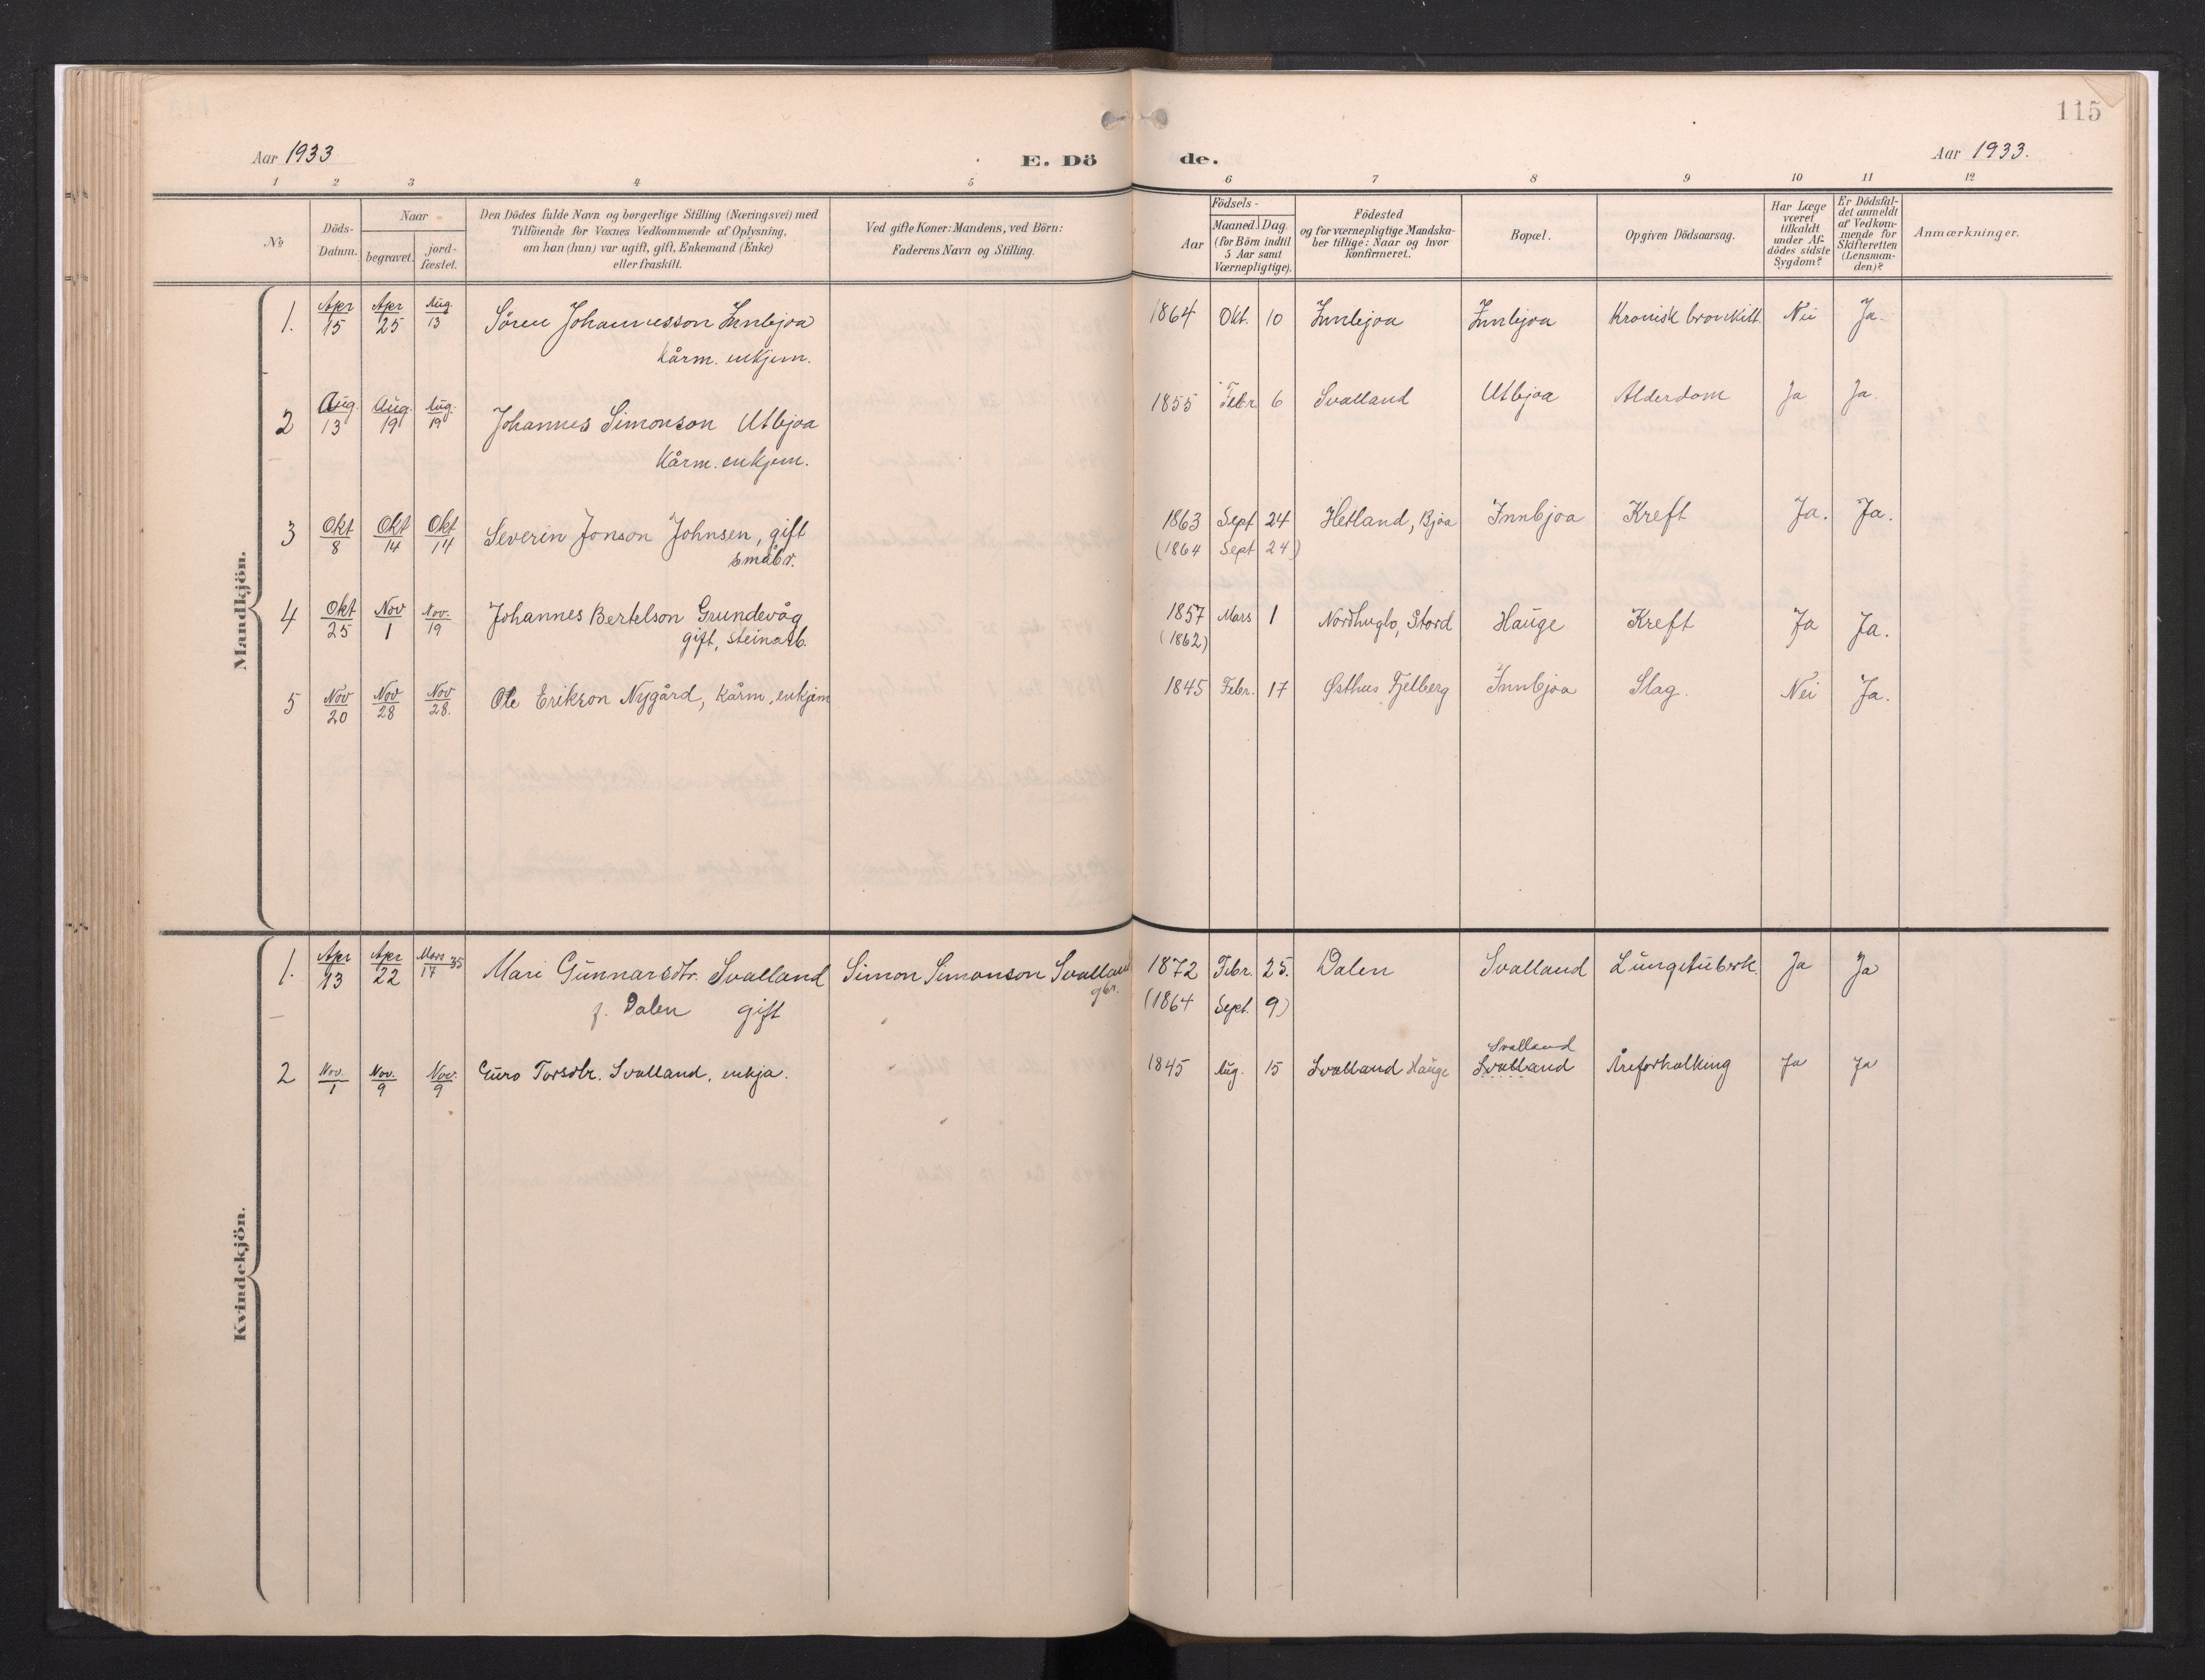 115
Aar 1933
E. Dö de.
Aar 1933.
1 2 3 4 5 6 7 8 9 10 11 12
No
Döds-
Datum.
Naar
begravet.
jord-
fæstet.
Den Dödes fulde Navn og borgerlige Stilling (Næringsvei) med
Tilföiende for Voxnes Vedkommende af Oplysning,
om han (hun) var ugift, gift, Enkemand (Enke)
eller fraskilt.
Ved gifte Koner: Mandens, ved Börn:
Faderens Navn og Stilling.
Födsels-
Aar
Maaned.
Dag.
(for Börn indtil
5 Aar samt
Værnepligtige).
Födested
og for værnepligtige Mandska-
ber tillige: Naar og hvor
konfirmeret.
Bopæl.
Opgiven Dödsaarsag.
Har Læge
været
tilkaldt
under Af-
dödes sidste
Sygdom?
Er Dödsfal-
det anmeldt
af Vedkom-
mende for
Skifteretten
(Lensman-
den)?
Anmærkninger.
Mandkjön.
1. Apr 15 Apr 25 Aug. 13 Søren Johannesson Innbjoa 1864 Okt. 10 Innbjoa Innbjoa Kronisk bronkitt. Nei Ja.
kårm. enkjem.
2 Aug. 13 Aug. 19 Aug. 19 Johannes Simonson Utbjoa 1855 Febr 6 Svalland Utbjoa Alderdom Ja Ja.
Kårm. enkjem.
3 Okt 8 Okt 14 Okt 14 Severin Jonson Johnsen, gift 1863 Sept 24 Hetland, Bjoa Innbjoa Kreft Ja. Ja.
småbr. (1864 Sept 24)
4 Okt 25 Nov 1 Nov. 19 Johannes Bertelson Grundevåg 1857 Mars 1 Nordhuglo, Stord Hauge Kreft Ja Ja.
gift, steinarb. (1862)
5 Nov 20 Nov 28 Nov 28. Ole Erikson Nygård, kårm, enkjem 1845 Febr. 17 Østhus Fjelberg Innbjoa Slag. Nei Ja.
Kvindekjön.
1. Apr 13 Apr 22 Mars 17 35 Mari Gunnarsdtr. Svalland Simon Simonson Svalland 1872 Febr. 25. Dalen Svalland Lungetuberk. Ja Ja
f. Dalen gift gbr. (1864 Sept. 9)
Svalland
2 Nov. 1 Nov. 9 Nov. 9 Guro Torsdtr. Svalland, enkja. 1845 Aug. 15 Svalland Hauge Svalland Åreforkalking Ja Ja